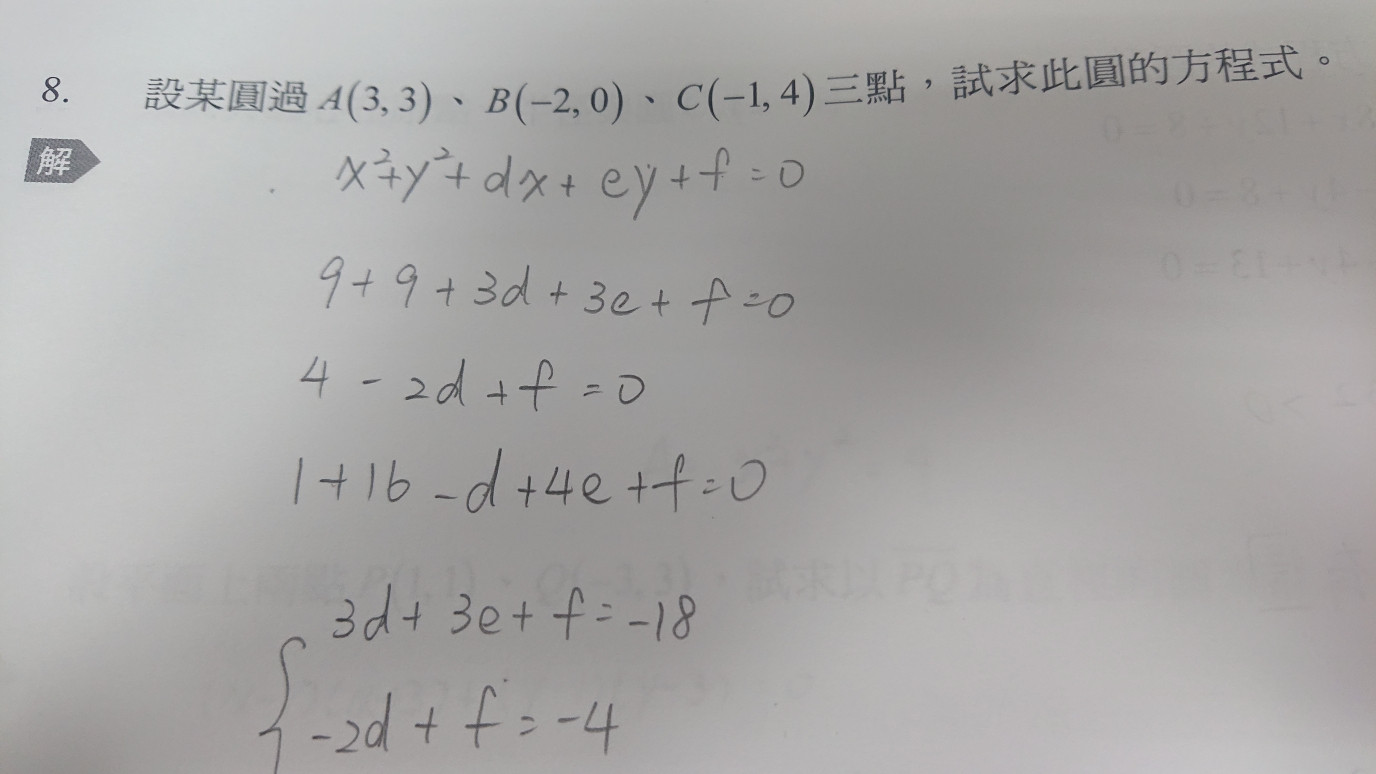 8. 設某圓過 A(3, 3)、B(−2, 0)、C(−1, 4) 三點，試求此圓的方程式。
解
x²+y²+dx+ey+f=0
9+9+3d+3e+f=0
4-2d+f=0
1+16-d+4e+f=0
3d+3e+f=-18
-2d+f=-4